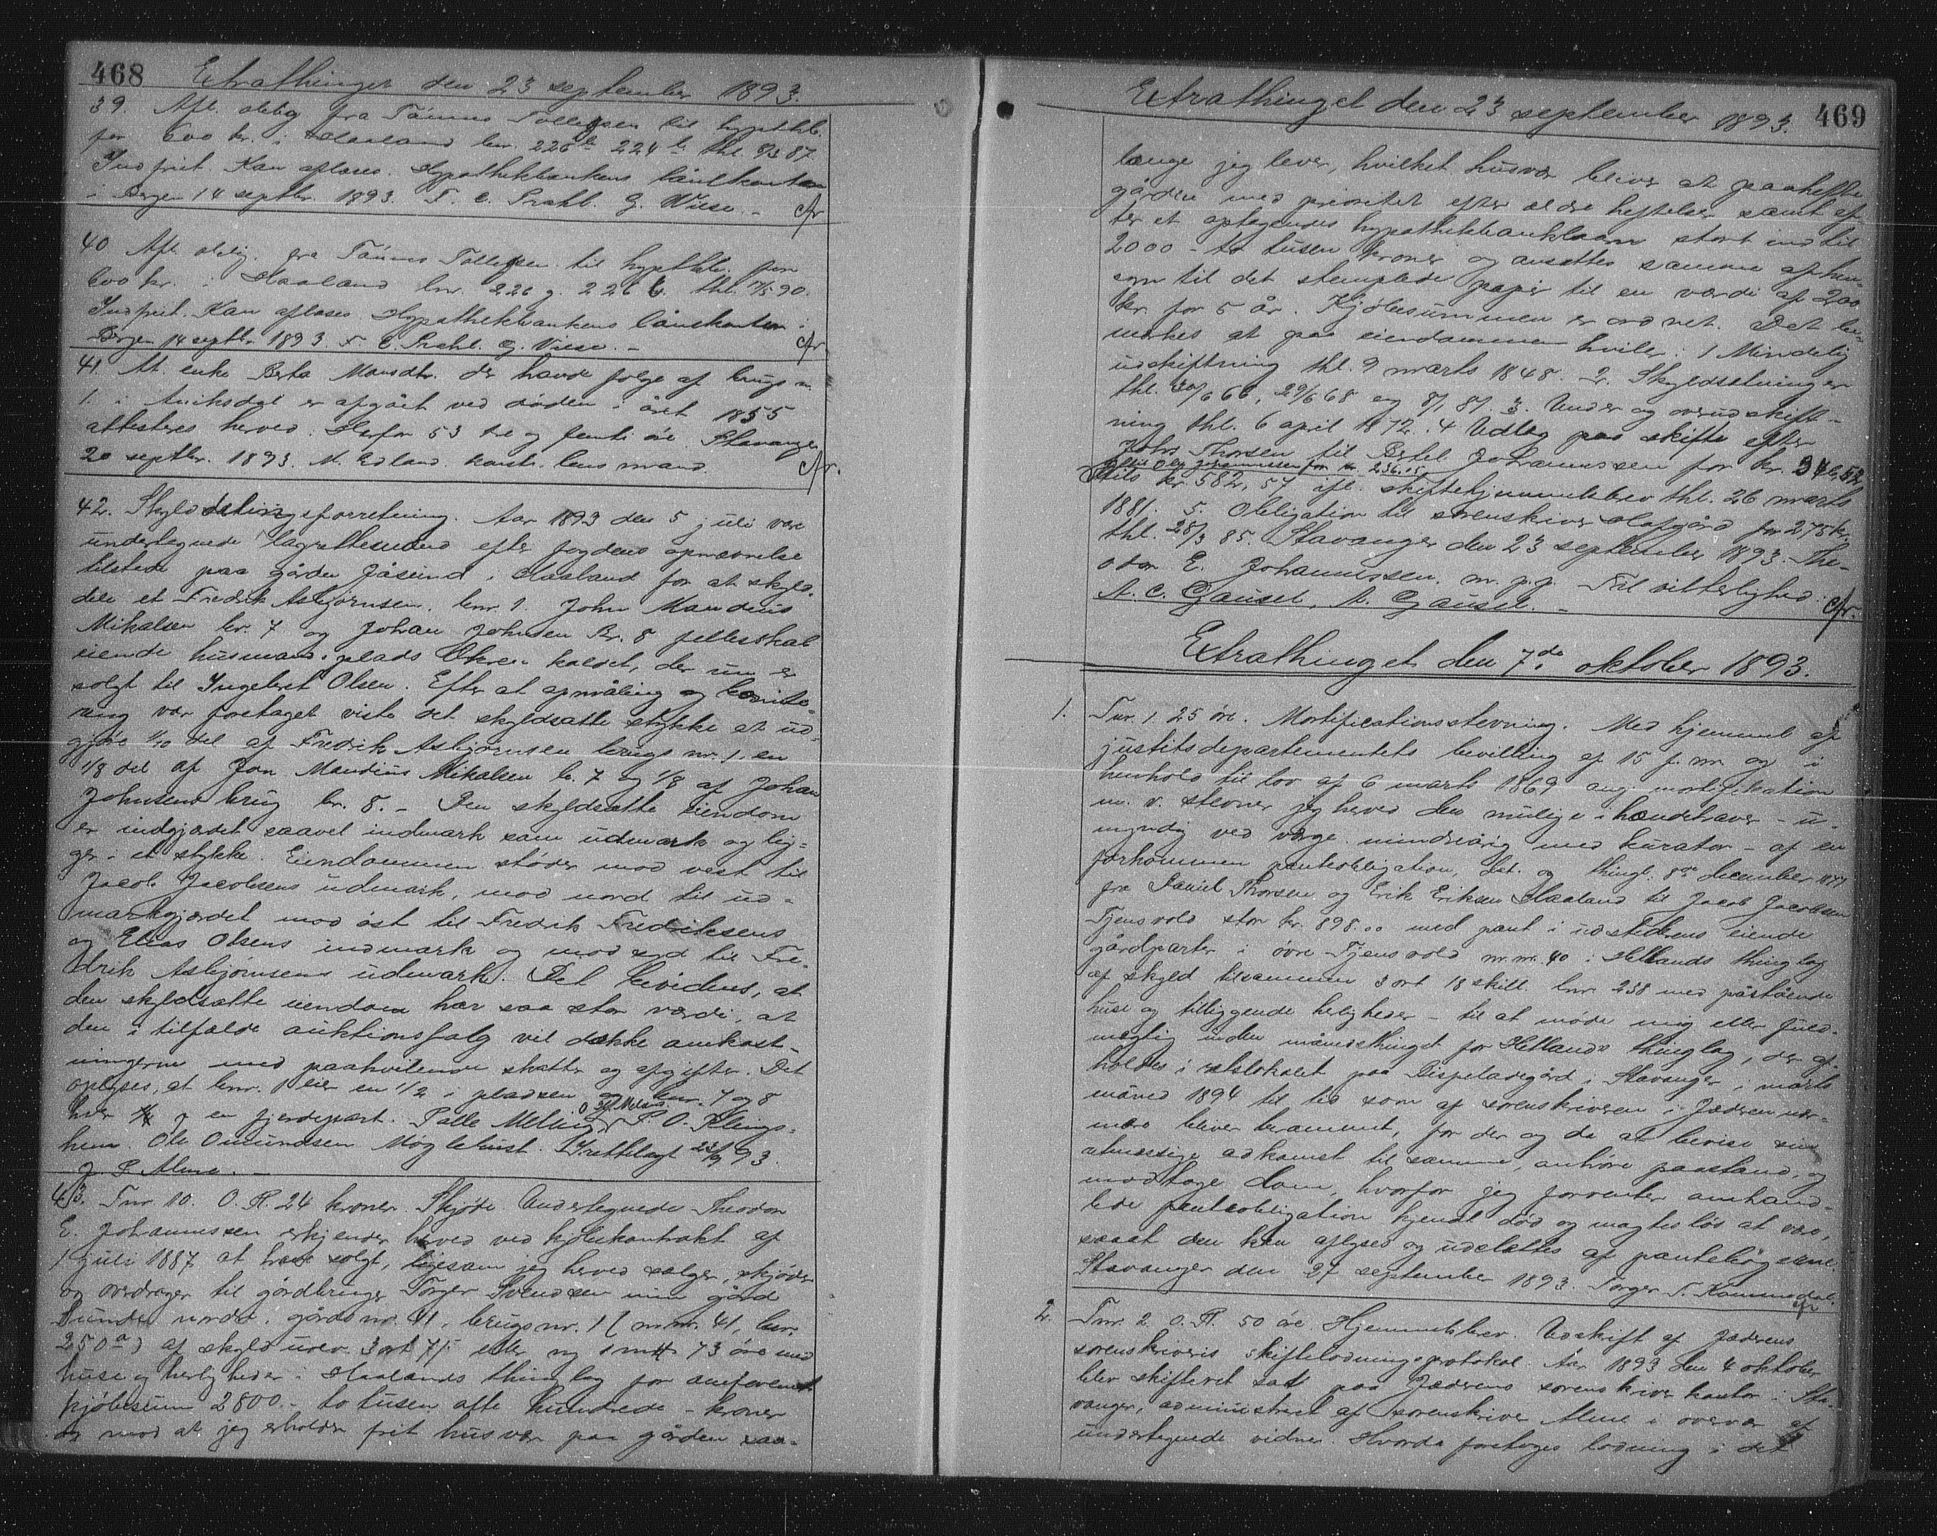 468 Extrathinget den 23 september 1893.
39. Afl. oblig fra Tønnes Tollefsen til hypthb.
for 600 kr. i Haaland lnr. 226 b 224 b thl. 87.
Indfriet. Kan aflæses. Hypothekbankens lånekontor
i Bergen 14 septbr. 1893. F. C. Prahl. G. Wiese. - cfr
40 Afl. oblig. fra Tønnes Tollefsen til hypthb. for
600 kr. i Haaland lnr. 226 g. 226 b. thl. 90.
Indfriet. Kan aflæses Hypothekbankens lånekontor i
Bergen 14 septbr 1893 F C. Prahl. G. Wiese. - cfr
41 At enke Berta Mandtr. der havde folge af brugs n
1. i Auiksdal er afgået ved døden i året 1855
attesteres herved. Herfor 53 tre og femti øre. Stavanger
20 septbr. 1893. M. Edland. konst. lensmand. cfr.
42. Skyldsetningsforretning. Aar 1893 den 5 juli vare
undertegnede lagrettesmænd efter fogdens opnævnelse
tilstede paa gården Jåsund i Haaland for at skyld-
dele et Fredrik Asbjørnsen. bnr 1. John Mandius
Mikalsen br. 7 og Johan Johnsen Br. 8 fellesskab
eiende husmandsplads Okren kaldet, der nu er
solgt til Ingebret Olsen. Efter at opmåling og bonite-
ring var foretaget viste det skyldsatte stykke at ud-
gjøre 1/10 del af Fredrik Asbjørnsen brugs nr. 1, en
1/8 del af Jon Mandius Mikalsen b. 7 og 1/8 af Johan
Johnsens brug br. 8. - Den skyldsatte eiendom
er indgjærdet saavel indmark som udmark og lig-
ger i et stykke. Eiendommen støder mod vest til
Jacob Jacobsens udmark, mod nord til ud-
markgjærdet mod øst til Fredrik Fredriksens
og Elias Olsens indmark og mod syd til Fre-
drik Asbjørnsens udmark. Det bevidnes, at
den skyldsatte eiendom har saa stor værdi, at
den i tilfælde auktionsfalg vil dække omkost-
ningerne med paahvilende skatter og afgifter. Det
oplyses, at bnr. 1 eier en 1/2 i pladsen og bnr. 7 og 8
hver en fjerdepart. Tolle Melling P. O. Klings-
hem. Ole Omundsen Møglehust. Fretlagt 23/9 93.
J. P. Alme. -
43. Tnr. 10. O. R. 24 kroner. Skjøde. Undertegnede Theodor
E. Johannessen erkjender herved ved kjøbekontrakt af
1 juli 1887 at have solgt, ligesom jeg herved sælger, skjøder
og overdrager til gårdbruger Torger Svendsen min gård
Sunde nordre, gårds nr. 41, brugs nr. 1 (m. nr. 41, lnr.
250 a) af skyld urev. 3 ort 7/5 eller ny 1 mrk 73 øre med
huse og herligheder i Haalands thinglag for omforenet
kjøbesum 2800. - to tusen otte hundrede - kroner
og mod at jeg erholder frit husvær paa gården saa-
Extrathinget den 23 september 1893. 469
længe jeg lever, hvilket husvær bliver at paahefte
gården med prioritet efter ældre heftelser samt ef-
ter et optagendes hypothekbanklaan stort indtil
2000 - to tusen kroner og ansættes samme af hen-
syn til det stemplede papir til en værdi af 200
kr. for 5 år. Kjøbesummen er ordnet. Det be-
mærkes at paa eiendommen hviler: 1 Mindelig
udskiftning thl. 9 marts 1848. 2. Skyldsetninger
thl. 20/6 66, 29/6 68 og 8/1 81 3. Under og overudskift-
ning thl. 6 april 1872. 4 Udlæg paa skifte efter
John Thorsen til Bertel Johannessen for kr. 346,52
kr. 236.05
kr 582, 57 ifl. skiftehjemmelsbrev thl. 26 marts
1881. 5. Obligation til sorenskriver Hofgård for 275 kr.
thl. 28/3 85. Stavanger den 23 september 1893. The-
odor E. Johannessen. m. p. p. Til vitterlighed:
A. C. Gausel, A. Gausel. - cfr.
Extrathinget den 7de oktober 1893.
1. Tnr. 1. 25 øre. Mortifikationsstevning. Med hjemmel af
justitsdepartementets bevilling af 15 f. m. og i
henhold til lov af 6 marts 1869 ang. mortifikation
m. v. stevner jeg herved den mulige ihændehaver - u-
myndig ved værge mindreårig med kurator - af en
forkommen panteobligation, dat. og thingl. 8de december 1877
fra Daniel Thorsen og Erik Eriksen Haaland til Jacob Jacobsen
Tjensvold stor kr. 898.00 med pant i udstederens eiende
gårdparter i øvre Tjensvold m. nr. 40 i Hetlands thinglag
af skyld tilsammen 3 ort 18 skill lnr. 238 med påstående
huse og tilliggende herligheder - til at møde mig eller fuld-
mægtig inden måndsthinget for Hetlands thinglag, der af-
holdes i retslokalet paa Bispeladegård i Stavanger i marts
måned 1894 til tid som af sorenskriveren i Jæderen nær-
mere bliver berammet, for der og da at bevise sin
atmæssige adkomst til samme, anhøre paastand, og
modtage dom, hvorfor jeg forventer omhand-
lede panteobligation kjendt død og magtesløs at være,
saaat den kan aflyses og udslettes af pantebøgerne
Stavanger den 27 september 1893. Torger T. Kommedal.
cfr
2. Tnr. 2 O. R. 50 øre Hjemmelsbrev. Udskrift af Jæderens
sorenskriveris skiftelodningsprotokol Aar 1893 den 4 oktober
blev skifteret sat paa Jæderens sorenskriverkontor i Sta-
vanger, administreret af sorenskriver Alme i overvær af
undertegnede vidner. Hvorda foretoges lodning i det